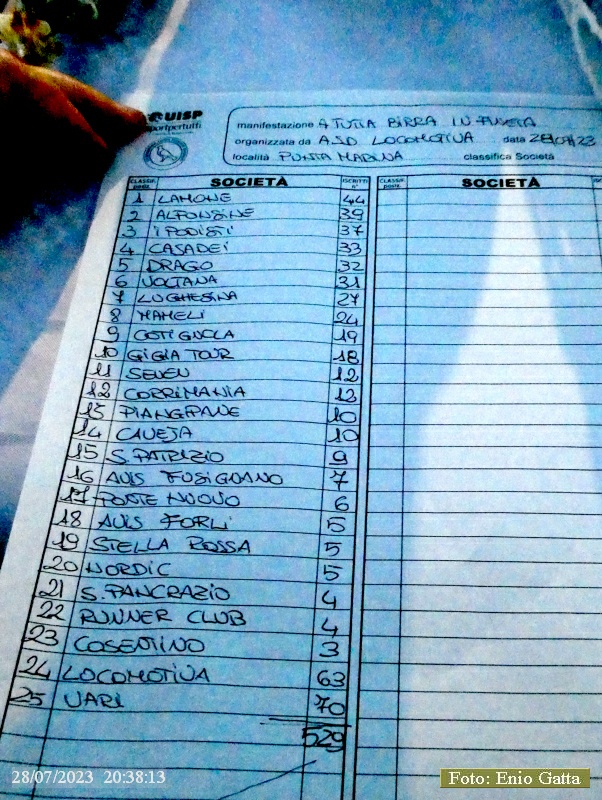 UISP
sportpertutti
manifestazione A TUTTA BIRRA IN PINETA
organizzata da A.S.D LOCOMOTIVA data 28/07/23
località PUNTA MARINA classifica Società
CLASSIF. poste. SOCIETÀ ISCRITTI n° CLASSIF. poste. SOCIETÀ
1 LAMONE 44
2 ALFONSINE 39
3 I PODISTI 37
4 CASADEI 33
5 DRAGO 32
6 VOLTANA 31
7 LUGHESINA 27
8 MAMELI 24
9 COTIGNOLA 19
10 GIGIA TOUR 18
11 SEVEN 12
12 CORRIMANIA 12
13 PIANGIPANE 10
14 CAVEJA 10
15 S. PATRIZIO 9
16 AVIS FUSIGNANO 7
17 PONTE NUOVO 6
18 AVIS FORLI' 5
19 STELLA ROSSA 5
20 NORDIC 5
21 S. PANCRAZIO 4
22 RUNNER CLUB 4
23 COSENTINO 3
24 LOCOMOTIVA 63
25 VARI 70
529
28/07/2023 20:38:13
Foto: Enio Gatta